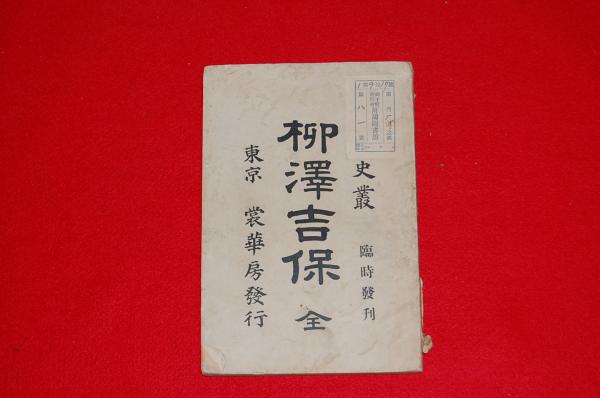 史叢 臨時發刊
柳澤吉保 全
東京 裳華房發行